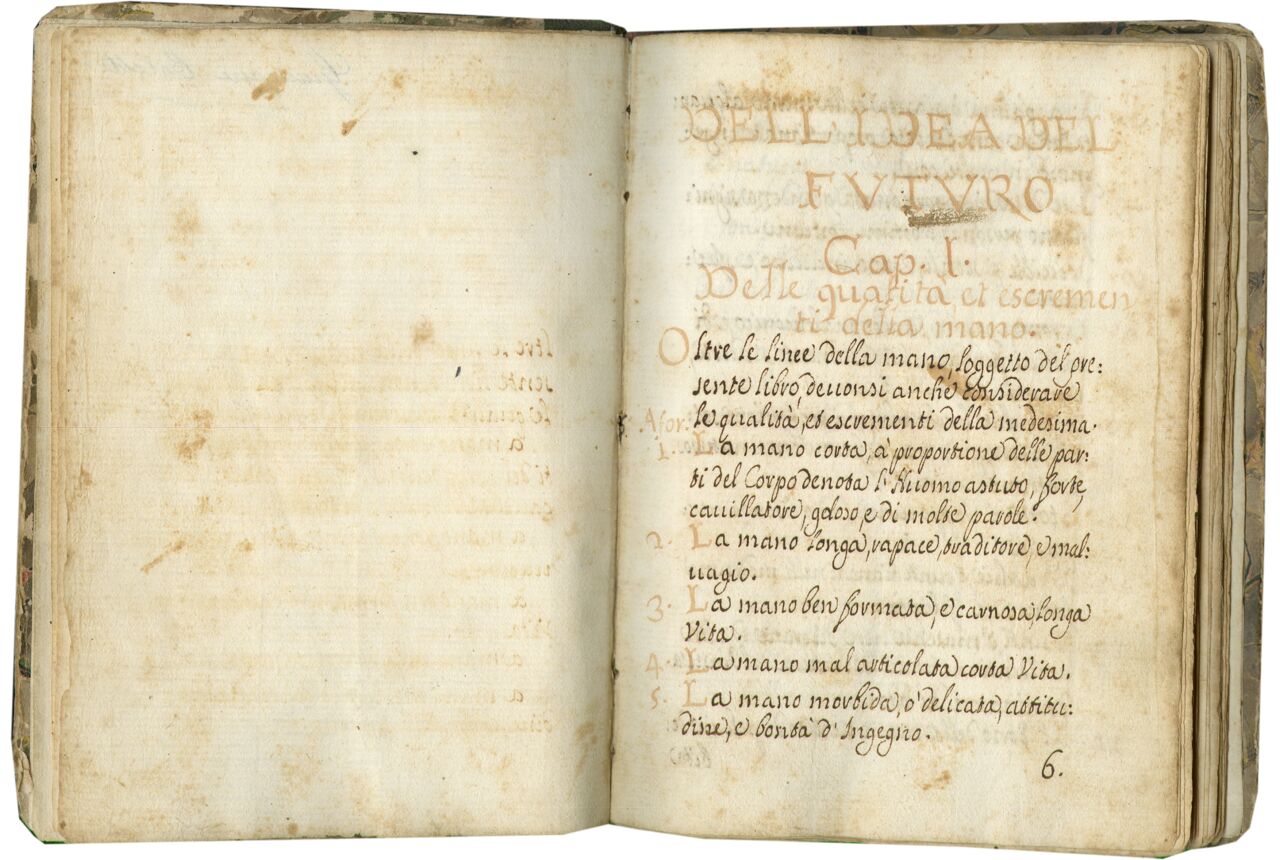 DELL'IDEA DEL
FVTVRO
Cap. I.
Delle qualità, et escremen
ti della mano.
Oltre le linee della mano, soggetto del pre:
sente libro, deuonsi anche considerare
le qualità, et escrementi della medesima.
Afor.
1. La mano corta, à proportione delle par:
ti del Corpo denota l'Huomo astuto, forte,
cauillatore, goloso, e di molte parole.
2. La mano longa, rapace, traditore, e mal:
uagio.
3. La mano ben formata, e carnosa, longa
Vita.
4. La mano mal articolata corta Vita.
5. La mano morbida, o' delicata, attitu:
dine, e bontà d'Ingegno.
6.